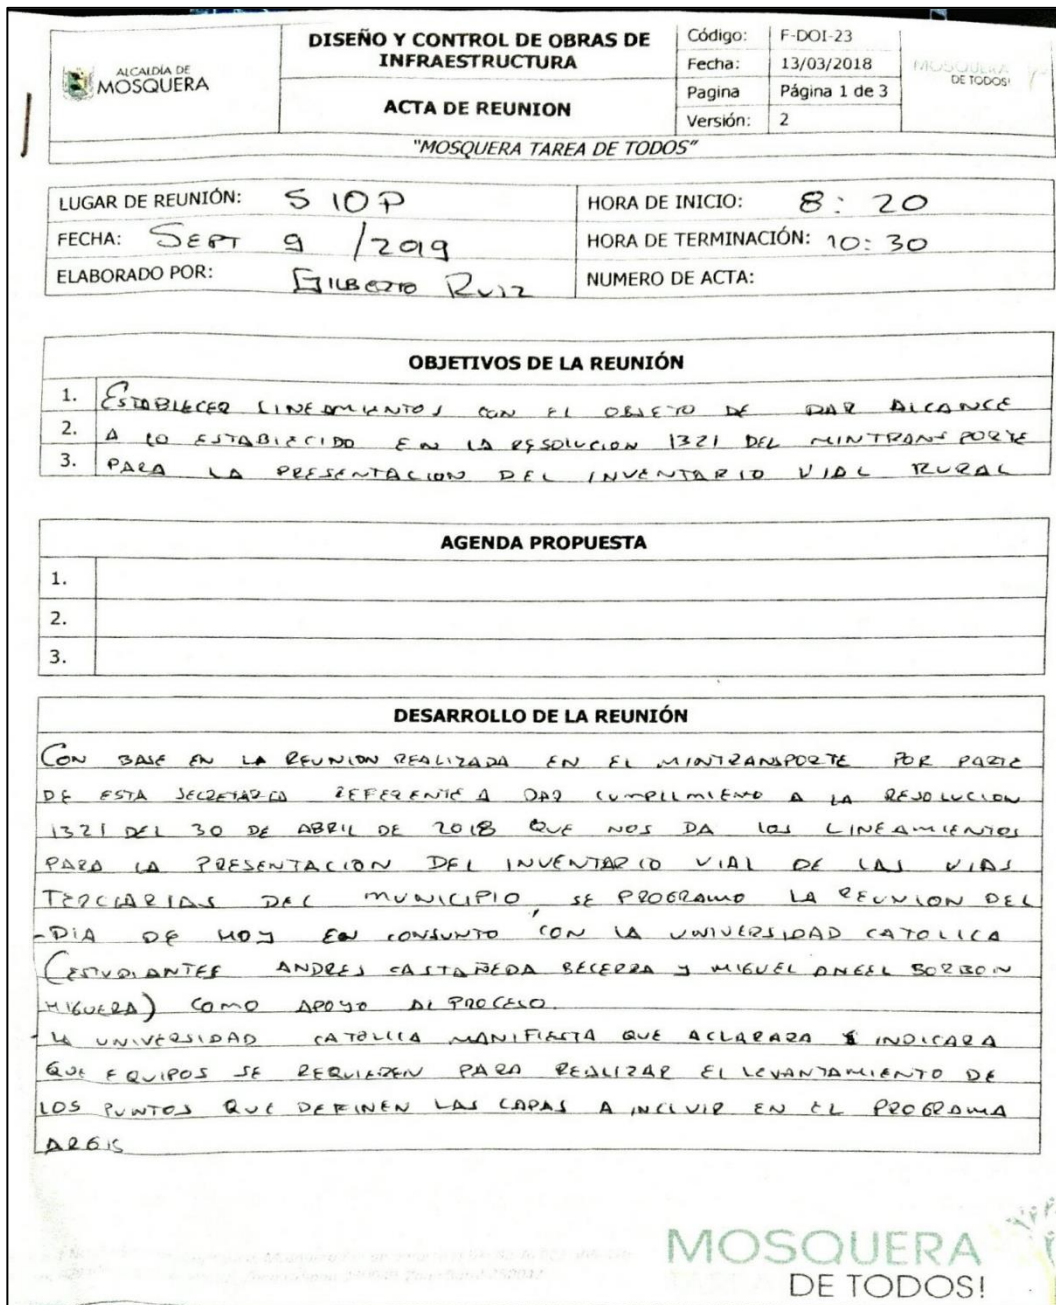 ALCALDÍA DE
MOSQUERA
DISEÑO Y CONTROL DE OBRAS DE
INFRAESTRUCTURA
ACTA DE REUNION
Código: F-DOI-23
Fecha: 13/03/2018
Pagina Página 1 de 3
Versión: 2
MOSQUERA
DE TODOS!
"MOSQUERA TAREA DE TODOS"
LUGAR DE REUNIÓN: SIOP
HORA DE INICIO: 8:20
FECHA: SEPT 9 /2019
HORA DE TERMINACIÓN: 10:30
ELABORADO POR: GILBERTO RUIZ
NUMERO DE ACTA:
OBJETIVOS DE LA REUNIÓN
1. ESTABLECER LINEAMIENTOS CON EL OBJETO DE DAR ALCANCE
2. A LO ESTABLECIDO EN LA RESOLUCION 1321 DEL MINTRANSPORTE
3. PARA LA PRESENTACION DEL INVENTARIO VIAL RURAL
AGENDA PROPUESTA
1.
2.
3.
DESARROLLO DE LA REUNIÓN
CON BASE EN LA REUNION REALIZADA EN EL MINTRANSPORTE POR PARTE
DE ESTA SECRETARIA REFERENTE A DAR CUMPLIMIENO A LA RESOLUCION
1321 DEL 30 DE ABRIL DE 2018 QUE NOS DA LOS LINEAMIENTOS
PARA LA PRESENTACION DEL INVENTARIO VIAL DE LAS VIAS
TERCIARIAS DEL MUNICIPIO, SE PROGRAMO LA REUNION DEL
-DIA DE HOY EN CONJUNTO CON LA UNIVERSIDAD CATOLICA
(ESTUDIANTES ANDRES CASTAÑEDA BECERRA Y MIGUEL ANGEL BORBON
HIGUERA) COMO APOYO AL PROCESO.
- LA UNIVERSIDAD CATOLICA MANIFIESTA QUE ACLARARA E INDICARA
QUE EQUIPOS SE REQUIEREN PARA REALIZAR EL LEVANTAMIENTO DE
LOS PUNTOS QUE DEFINEN LAS CAPAS A INCLUIR EN EL PROGRAMA
ARGIS
MOSQUERA
DE TODOS!